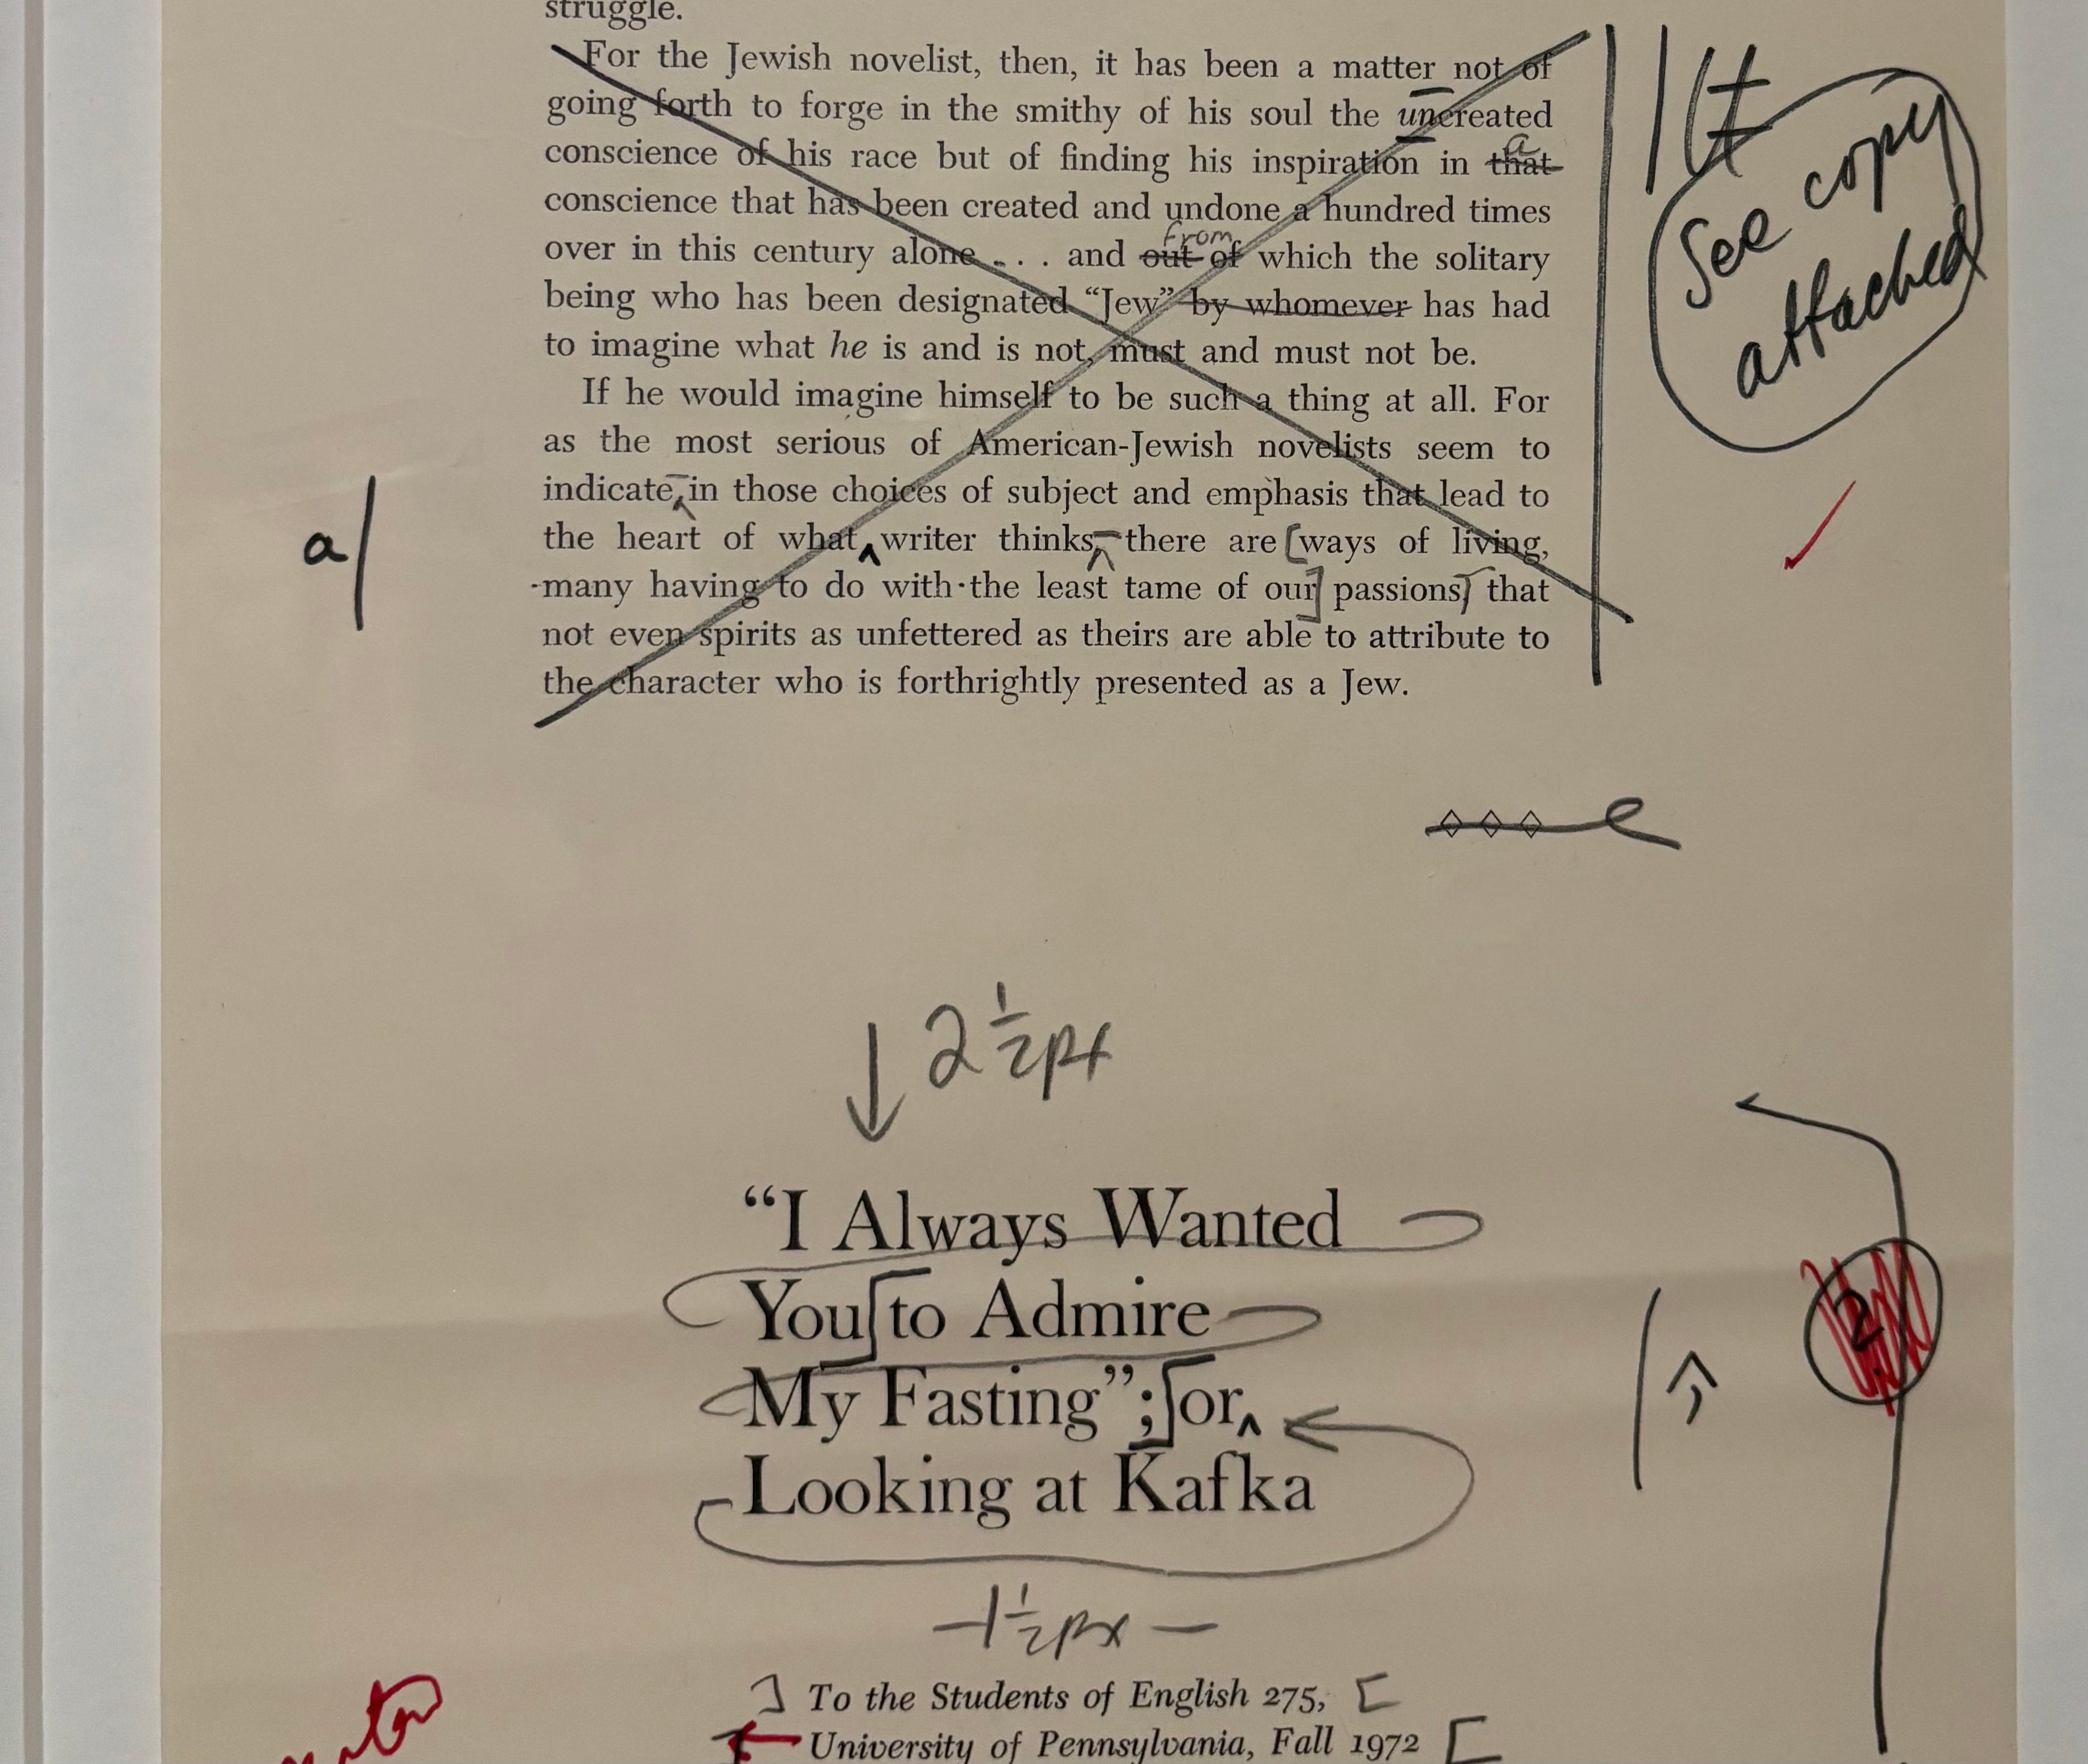 struggle.
For the Jewish novelist, then, it has been a matter not of
going forth to forge in the smithy of his soul the uncreated
conscience of his race but of finding his inspiration in that
a
conscience that has been created and undone a hundred times
from
over in this century alone . . . and out of which the solitary
being who has been designated “Jew” by whomever has had
to imagine what he is and is not, must and must not be.
If he would imagine himself to be such a thing at all. For
as the most serious of American-Jewish novelists seem to
indicate, in those choices of subject and emphasis that lead to
the heart of what writer thinks, there are ways of living,
many having to do with the least tame of our passions, that
not even spirits as unfettered as theirs are able to attribute to
the character who is forthrightly presented as a Jew.
See copy
attached
a/
2 1/2 px
“I Always Wanted
You to Admire
My Fasting”; or
Looking at Kafka
2
1 1/2 px
To the Students of English 275,
University of Pennsylvania, Fall 1972